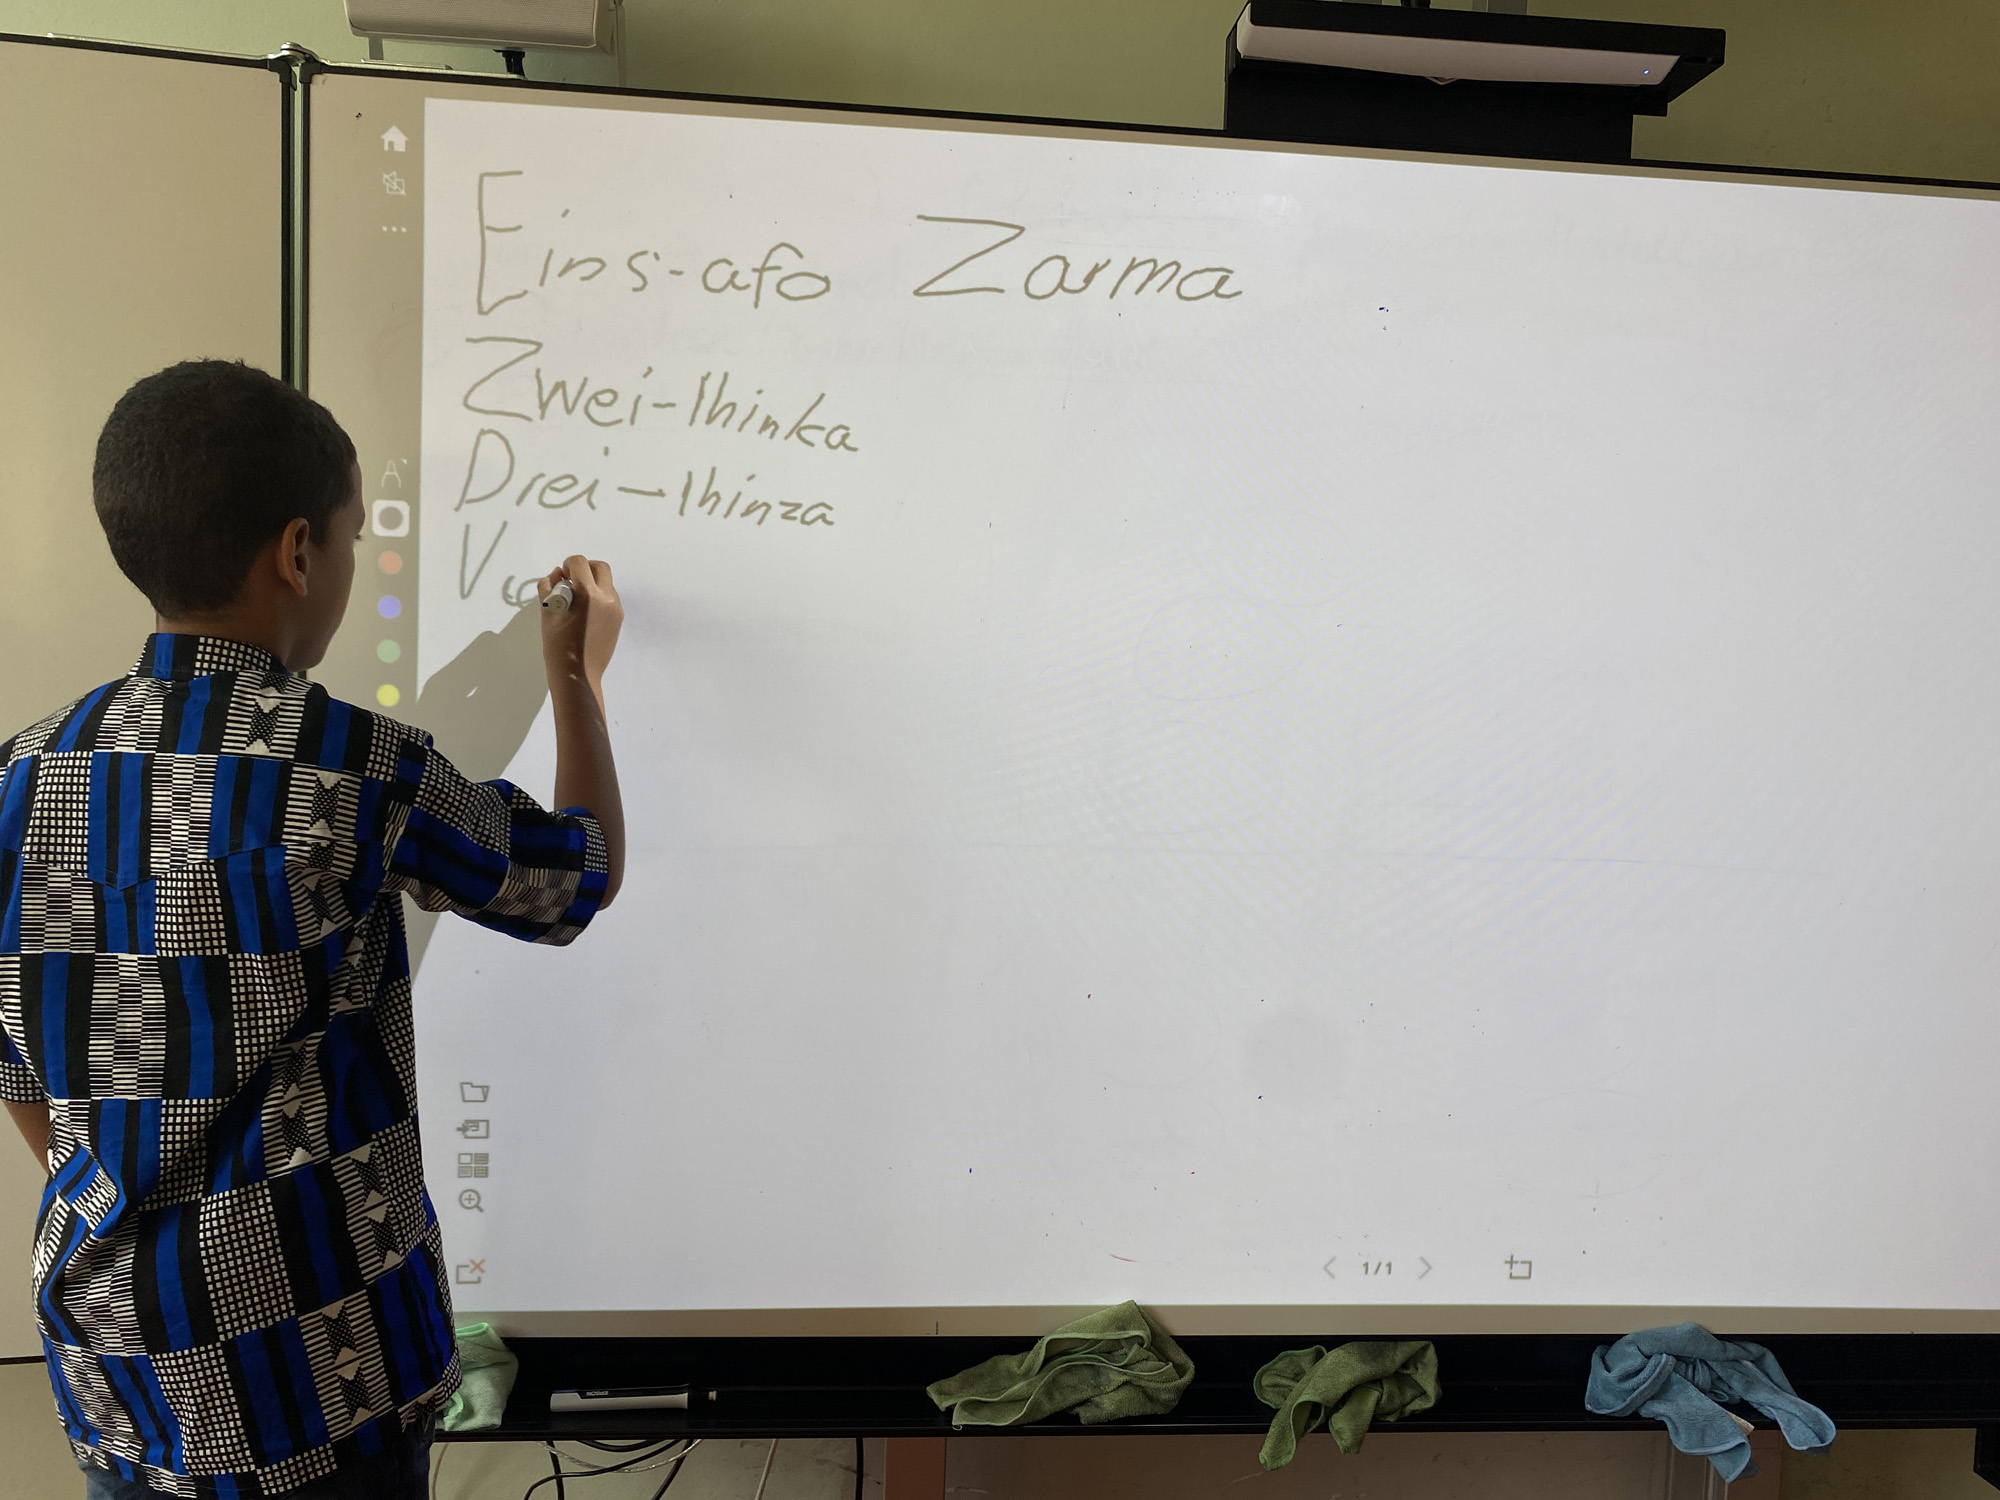 Eins-afo Zarma
Zwei-Ihinka
Drei-Ihinza
V
1/1
EPSON